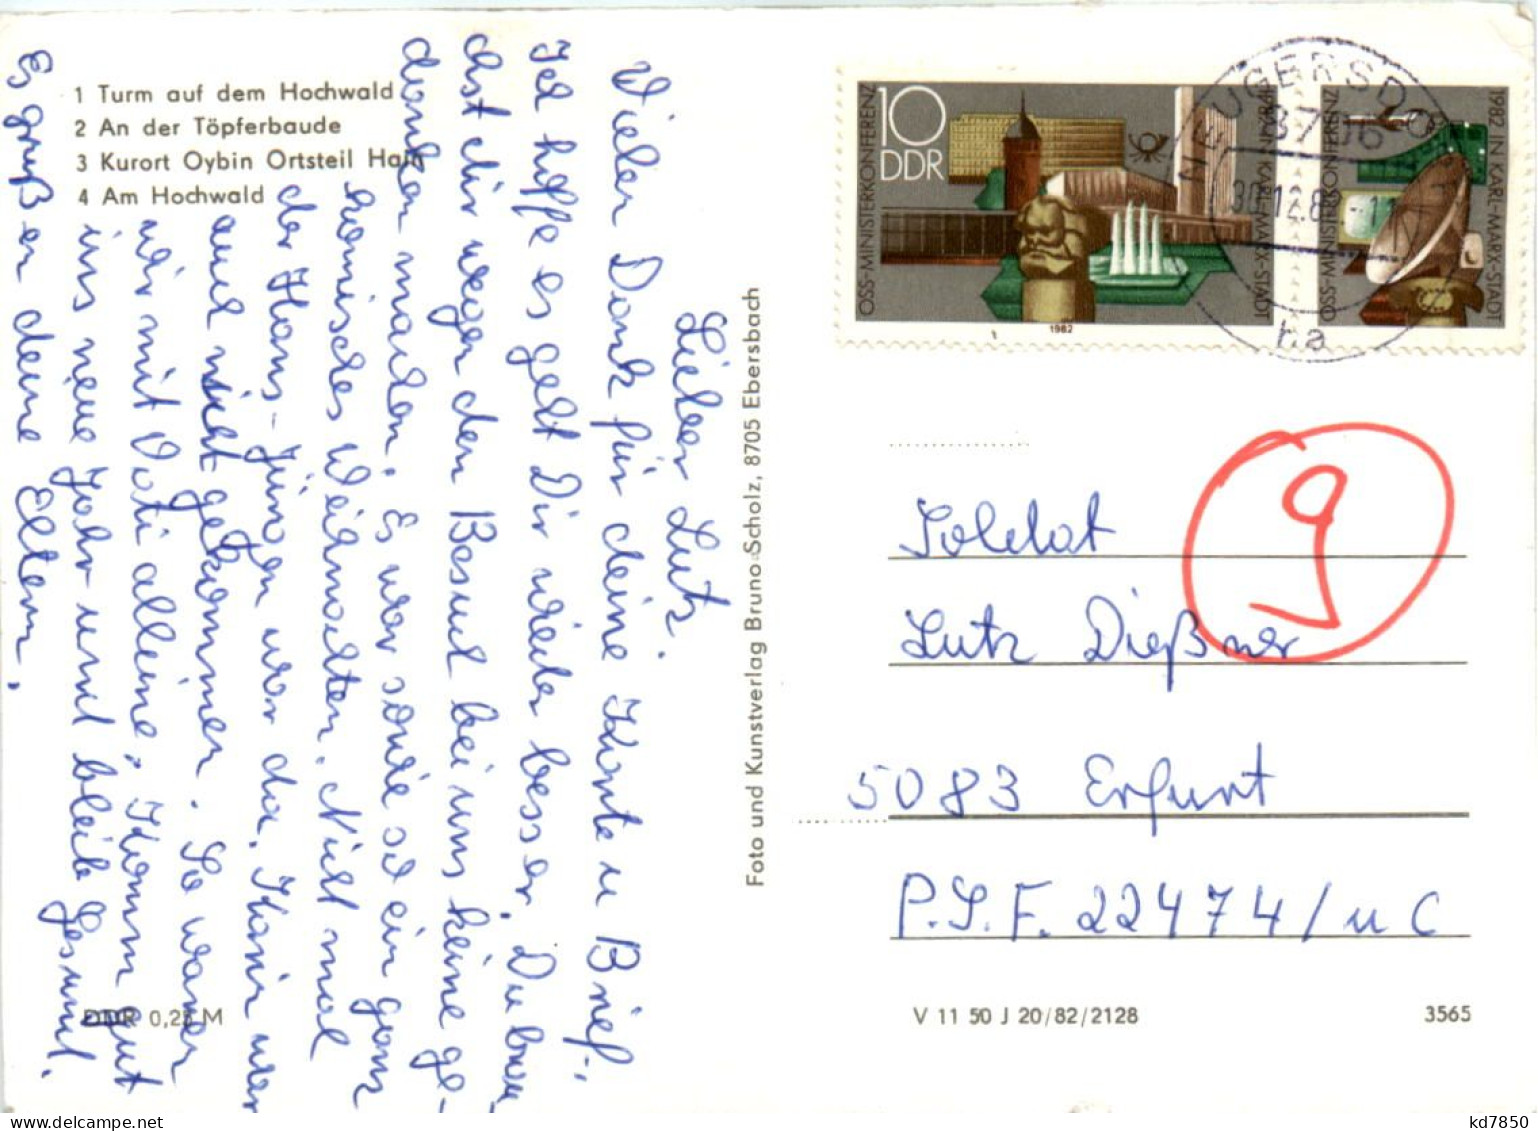 1 Turm auf dem Hochwald
2 An der Töpferbaude
3 Kurort Oybin Ortsteil Hain
4 Am Hochwald
Lieber Lutz.
Vielen Dank für deine Karte u Brief.
Ich hoffe es geht Dir wieder besser. Du brau-
chst dir wegen den Besuch bei uns keine ge-
danken machen. Es war sowie so ein ganz
komisches Weihnachten. Nicht mal
der Hans-Jürgen war da. Karin war
auch nicht gekommen. So waren
wir mit Vati alleine. Komm gut
ins neue Jahr und bleib Gesund.
Es grüßen deine Eltern.
DDR 0,25 M
Foto und Kunstverlag Bruno Scholz, 8705 Ebersbach
10
DDR
OSS-MINISTERKONFERENZ
1982 IN KARL-MARX-STADT
1982
OSS-MINISTERKONFERENZ
1982 IN KARL-MARX-STADT
NEUGERSDORF
8706
30.12.8
ha
9
Soldat
Lutz Dießner
5083 Erfurt
P.S.F. 22474/u C
V 11 50 J 20/82/2128
3565
kd7850